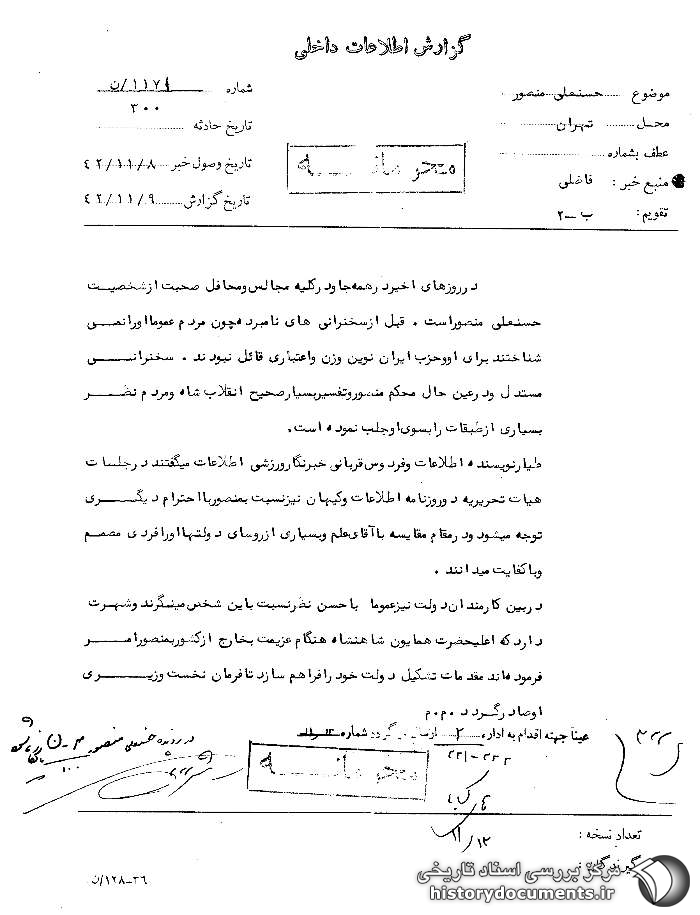 گزارش اطلاعات داخلی
موضوع حسنعلی منصور
محل تهران
عطف بشماره
منبع خبر : فاضلی
تقویم: ب -۲
شماره ۱۱۷۴/ن
۳۰۰
تاریخ حادثه
تاریخ وصول خبر ۴۲/۱۱/۸
تاریخ گزارش ۴۲/۱۱/۹
محرمانه
در روزهای اخیر در همه جا و در کلیه مجالس و محافل صحبت از شخصیت
حسنعلی منصور است . قبل از سخنرانی های نامبرده چون مردم عموما او را نمی
شناختند برای او و حزب ایران نوین وزن و اعتباری قائل نبودند . سخنرانی
مستدل و در عین حال محکم منصور و تفسیر بسیار صحیح انقلاب شاه و مردم نظر
بسیاری از طبقات را بسوی او جلب نموده است.
طیار نویسنده اطلاعات و فردوس قربانی خبرنگار ورزشی اطلاعات میگفتند در جلسات
هیات تحریریه دو روزنامه اطلاعات و کیهان نیز نسبت بمنصور با احترام دیگری
توجه میشود و در مقام مقایسه با آقای علم و بسیاری از روسای دولتها او را فردی مصمم
و با کفایت میدانند .
در بین کارمندان دولت نیز عموما با حسن نظر نسبت باین شخص مینگرند و شهرت
دارد که اعلیحضرت همایون شاهنشاه هنگام عزیمت بخارج از کشور بمنصور امر
فرموده اند مقدمات تشکیل دولت خود را فراهم سازد تا فرمان نخست وزیری
او صادر گردد .م.م
عیناً جهته اقدام به اداره ۲ ارسال میگردد شماره
در پرونده حسنعلی منصور م-ن
محرمانه
۳۲۲
۲۳۱-۲۳۲
۱۱/۱۲
تعداد نسخه :
گیرندگان :
۱۲۸-۳۶/ن
مرکز بررسی اسناد تاریخی
historydocuments.ir